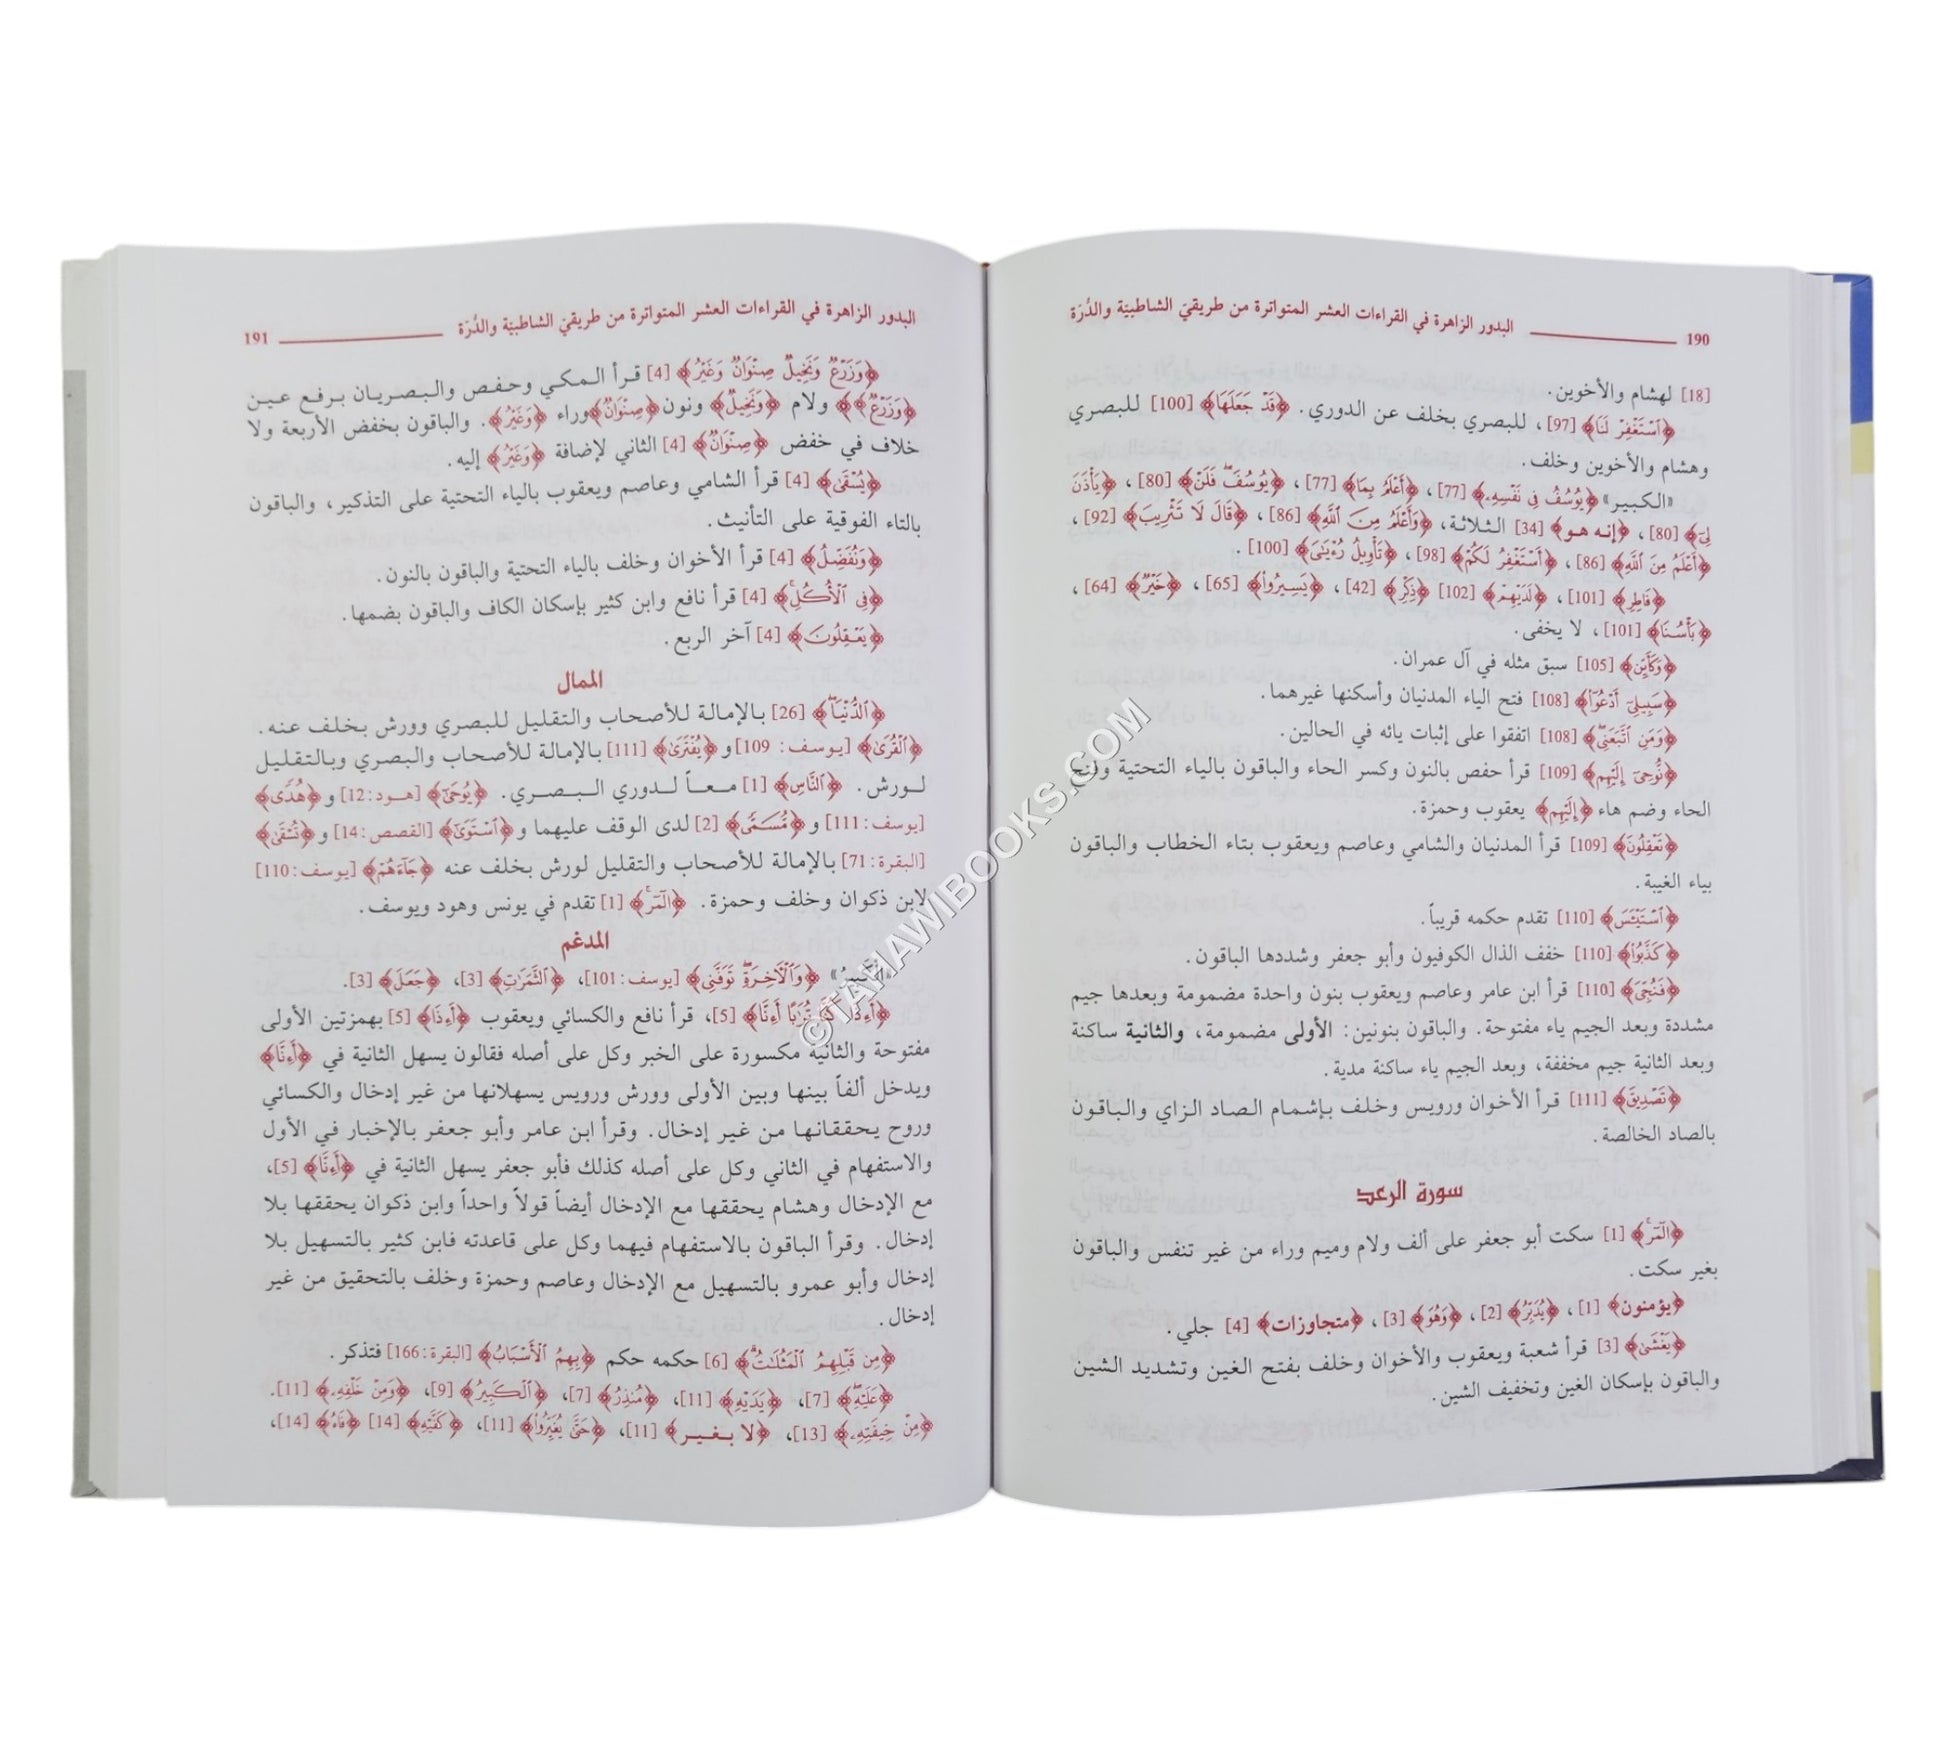 190 البدور الزاهرة في القراءات العشر المتواترة من طريقي الشاطبيّة والدُّرَة
[18] لهشام والأخوين.
﴿ٱسْتَغْفِرْ لَنَا﴾ [97]، للبصري بخلف عن الدوري. ﴿قَدْ جَعَلَهَا﴾ [100] للبصري
وهشام والأخوين وخلف.
«الكبير» ﴿يُوسُفُ فِى نَفْسِهِۦ﴾ [77]، ﴿أَعْلَمُ بِمَا﴾ [77]، ﴿يُوسُفَ فَلَنْ﴾ [80]، ﴿يَأْذَنَ
لِىٓ﴾ [80]، ﴿إنه هو﴾ [34] الثلاثة، ﴿وَأَعْلَمُ مِنَ ٱللَّهِ﴾ [86]، ﴿قَالَ لَا تَثْرِيبَ﴾ [92]،
﴿أَعْلَمُ مِنَ ٱللَّهِ﴾ [86]، ﴿أَسْتَغْفِرُ لَكُمْ﴾ [98]، ﴿تَأْوِيلُ رُءْيَٰىَ﴾ [100].
﴿فَاطِرَ﴾ [101]، ﴿لَدَيْهِمْ﴾ [102] ﴿ذِكْرٌ﴾ [42]، ﴿يَسِيرُوا۟﴾ [65]، ﴿خَيْرٌ﴾ [64]،
﴿بَأْسُنَا﴾ [101]، لا يخفى.
﴿وَكَأَيِّن﴾ [105] سبق مثله في آل عمران.
﴿سَبِيلِىٓ أَدْعُوٓا۟﴾ [108] فتح الياء المدنيان وأسكنها غيرهما.
﴿وَمَنِ ٱتَّبَعَنِى﴾ [108] اتفقوا على إثبات يائه في الحالين.
﴿نُّوحِىٓ إِلَيْهِم﴾ [109] قرأ حفص بالنون وكسر الحاء والباقون بالياء التحتية وفتح
الحاء وضم هاء ﴿إِلَيْهِم﴾ يعقوب وحمزة.
﴿تَعْقِلُونَ﴾ [109] قرأ المدنيان والشامي وعاصم ويعقوب بتاء الخطاب والباقون
بياء الغيبة.
﴿ٱسْتَيْـَٔسَ﴾ [110] تقدم حكمه قريباً.
﴿كُذِبُوا۟﴾ [110] خفف الذال الكوفيون وأبو جعفر وشددها الباقون.
﴿فَنُجِّىَ﴾ [110] قرأ ابن عامر وعاصم ويعقوب بنون واحدة مضمومة وبعدها جيم
مشددة وبعد الجيم ياء مفتوحة. والباقون بنونين: الأولى مضمومة، والثانية ساكنة
وبعد الثانية جيم مخففة، وبعد الجيم ياء ساكنة مدية.
﴿تَصْدِيقَ﴾ [111] قرأ الأخوان ورويس وخلف بإشمام الصاد الزاي والباقون
بالصاد الخالصة.
سورة الرعد
﴿الٓمٓر﴾ [1] سكت أبو جعفر على ألف ولام وميم وراء من غير تنفس والباقون
بغير سكت.
﴿يؤمنون﴾ [1]، ﴿يُدَبِّرُ﴾ [2]، ﴿وَهُوَ﴾ [3]، ﴿متجاوزات﴾ [4] جلي.
﴿يُغْشِى﴾ [3] قرأ شعبة ويعقوب والأخوان وخلف بفتح الغين وتشديد الشين
والباقون بإسكان الغين وتخفيف الشين.
البدور الزاهرة في القراءات العشر المتواترة من طريقي الشاطبيّة والدُّرَة 191
﴿وَزَرْعٌ وَنَخِيلٌ صِنْوَانٌ وَغَيْرُ﴾ [4] قرأ المكي وحفص والبصريان برفع عين
﴿وَزَرْعٌ﴾﴾ ولام ﴿وَنَخِيلٌ﴾ ونون ﴿صِنْوَانٌ﴾ وراء ﴿وَغَيْرُ﴾. والباقون بخفض الأربعة ولا
خلاف في خفض ﴿صِنْوَانٌ﴾ [4] الثاني لإضافة ﴿وَغَيْرُ﴾ إليه.
﴿يُسْقَىٰ﴾ [4] قرأ الشامي وعاصم ويعقوب بالياء التحتية على التذكير، والباقون
بالتاء الفوقية على التأنيث.
﴿وَنُفَضِّلُ﴾ [4] قرأ الأخوان وخلف بالياء التحتية والباقون بالنون.
﴿فِى ٱلْأُكُلِ﴾ [4] قرأ نافع وابن كثير بإسكان الكاف والباقون بضمها.
﴿يَعْقِلُونَ﴾ [4] آخر الربع.
الممال
﴿ٱلدُّنْيَا﴾ [26] بالإمالة للأصحاب والتقليل للبصري وورش بخلف عنه.
﴿ٱلْقُرَىٰ﴾ [يوسف: 109] و﴿يُفْتَرَىٰ﴾ [111] بالإمالة للأصحاب والبصري وبالتقليل
لورش. ﴿ٱلنَّاسِ﴾ [1] معاً لدوري البصري. ﴿يُوحَىٰ﴾ [هود:12] و﴿هُدًى﴾
[يوسف:111] و﴿مُّسَمًّى﴾ [2] لدى الوقف عليهما و﴿ٱسْتَوَىٰ﴾ [القصص:14] و﴿تُسْقَىٰ﴾
[البقرة:71] بالإمالة للأصحاب والتقليل لورش بخلف عنه ﴿جَآءَهُمْ﴾ [يوسف:110]
لابن ذكوان وخلف وحمزة. ﴿الٓمٓر﴾ [1] تقدم في يونس وهود ويوسف.
المدغم
«الكَبِيرُ» ﴿وَٱلْآخِرَةِ تَوَفَّنِى﴾ [يوسف:101]، ﴿ٱلثَّمَرَٰتِ﴾ [3]، ﴿جَعَلَ﴾ [3].
﴿أَءِذَا كُنَّا تُرَٰبًا أَءِنَّا﴾ [5]، قرأ نافع والكسائي ويعقوب ﴿أَءِذَا﴾ [5] بهمزتين الأولى
مفتوحة والثانية مكسورة على الخبر وكل على أصله فقالون يسهل الثانية في ﴿أَءِنَّا﴾
ويدخل ألفاً بينها وبين الأولى وورش ورويس يسهلانها من غير إدخال والكسائي
وروح يحققانها من غير إدخال. وقرأ ابن عامر وأبو جعفر بالإخبار في الأول
والاستفهام في الثاني وكل على أصله كذلك فأبو جعفر يسهل الثانية في ﴿أَءِنَّا﴾ [5]،
مع الإدخال وهشام يحققها مع الإدخال أيضاً قولاً واحداً وابن ذكوان يحققها بلا
إدخال. وقرأ الباقون بالاستفهام فيهما وكل على قاعدته فابن كثير بالتسهيل بلا
إدخال وأبو عمرو بالتسهيل مع الإدخال وعاصم وحمزة وخلف بالتحقيق من غير
إدخال.
﴿مِن قَبْلِهِمُ ٱلْمَثُلَٰتُ﴾ [6] حكمه حكم ﴿بِهِمُ ٱلْأَسْبَابُ﴾ [البقرة:166] فتذكر.
﴿عَلَيْهِ﴾ [7]، ﴿يَدَيْهِ﴾ [11]، ﴿مُنذِرٌ﴾ [7]، ﴿ٱلْكَبِيرُ﴾ [9]، ﴿وَمِنْ خَلْفِهِۦ﴾ [11].
﴿مِنْ خِيفَتِهِۦ﴾ [13]، ﴿لا يغير﴾ [11]، ﴿حَتَّىٰ يُغَيِّرُوا۟﴾ [11]، ﴿كَفَّيْهِ﴾ [14] ﴿فَاهُ﴾ [14]،
©TAHAWIBOOKS.COM